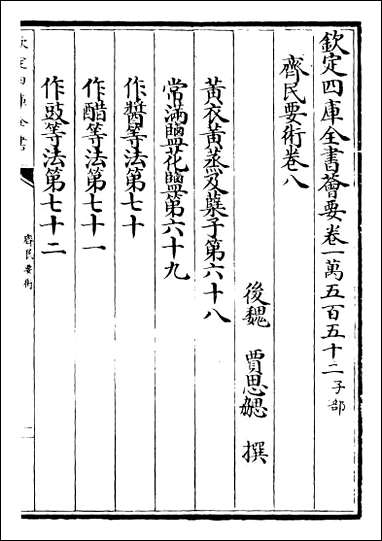 欽定四庫全書薈要卷一萬五百五十二子部
齊民要術卷八
後魏 賈思勰 撰
黃衣黃蒸及糵子第六十八
常滿鹽花鹽第六十九
作醬等法第七十
作醋等法第七十一
作豉等法第七十二
欽定四庫全書
齊民要術
一